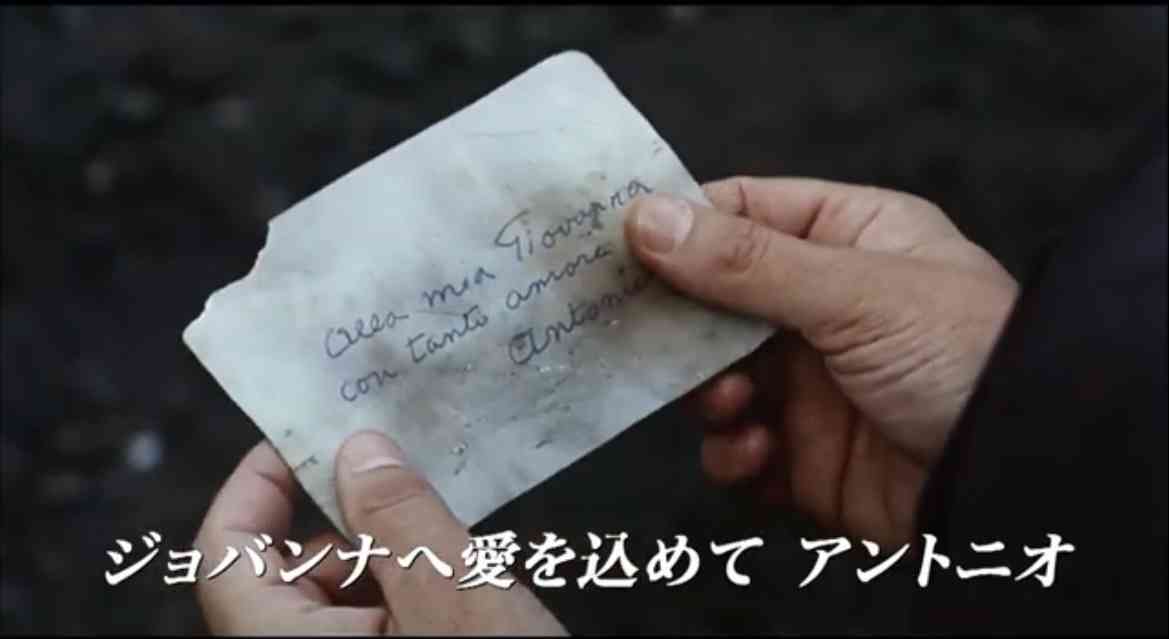 alla mia Giovanna
con tanto amore
Antonio
ジョバンナへ愛を込めて アントニオ